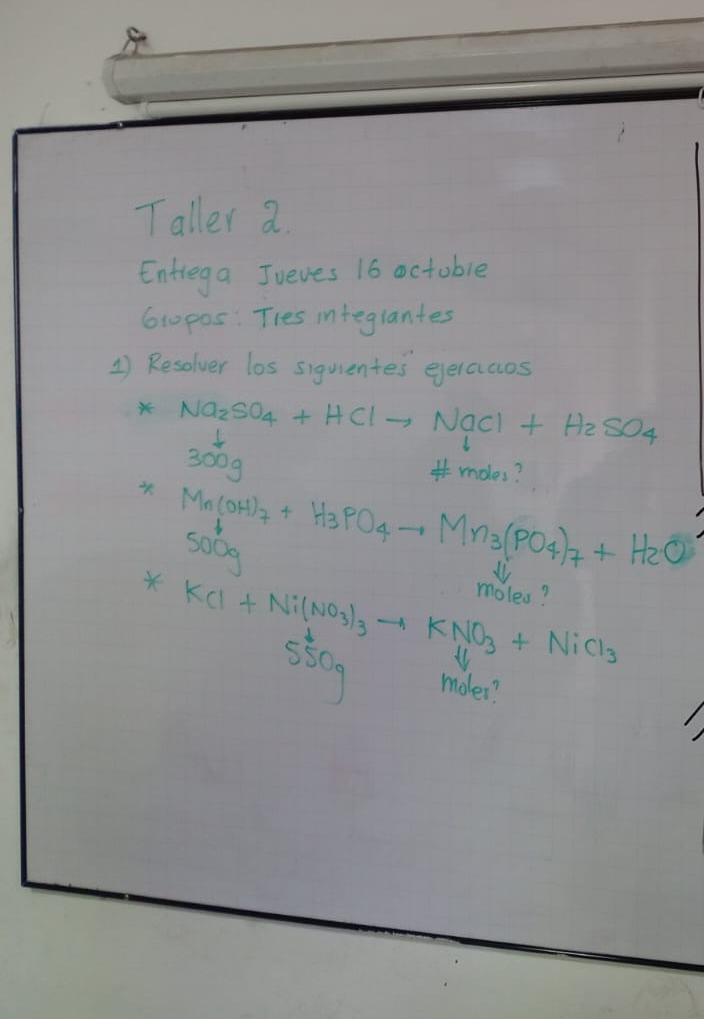 Taller 2.
Entrega Jueves 16 octubre
Grupos: Tres integrantes
1) Resolver los siguientes ejercicios
* Na₂SO₄ + HCl → NaCl + H₂SO₄
↓ ↓
300g # moles?
* Mn(OH)₇ + H₃PO₄ → Mn₃(PO₄)₇ + H₂O
↓ ⇓
500g moles?
* KCl + Ni(NO₃)₃ → KNO₃ + NiCl₃
↓ ⇓
550g moles?